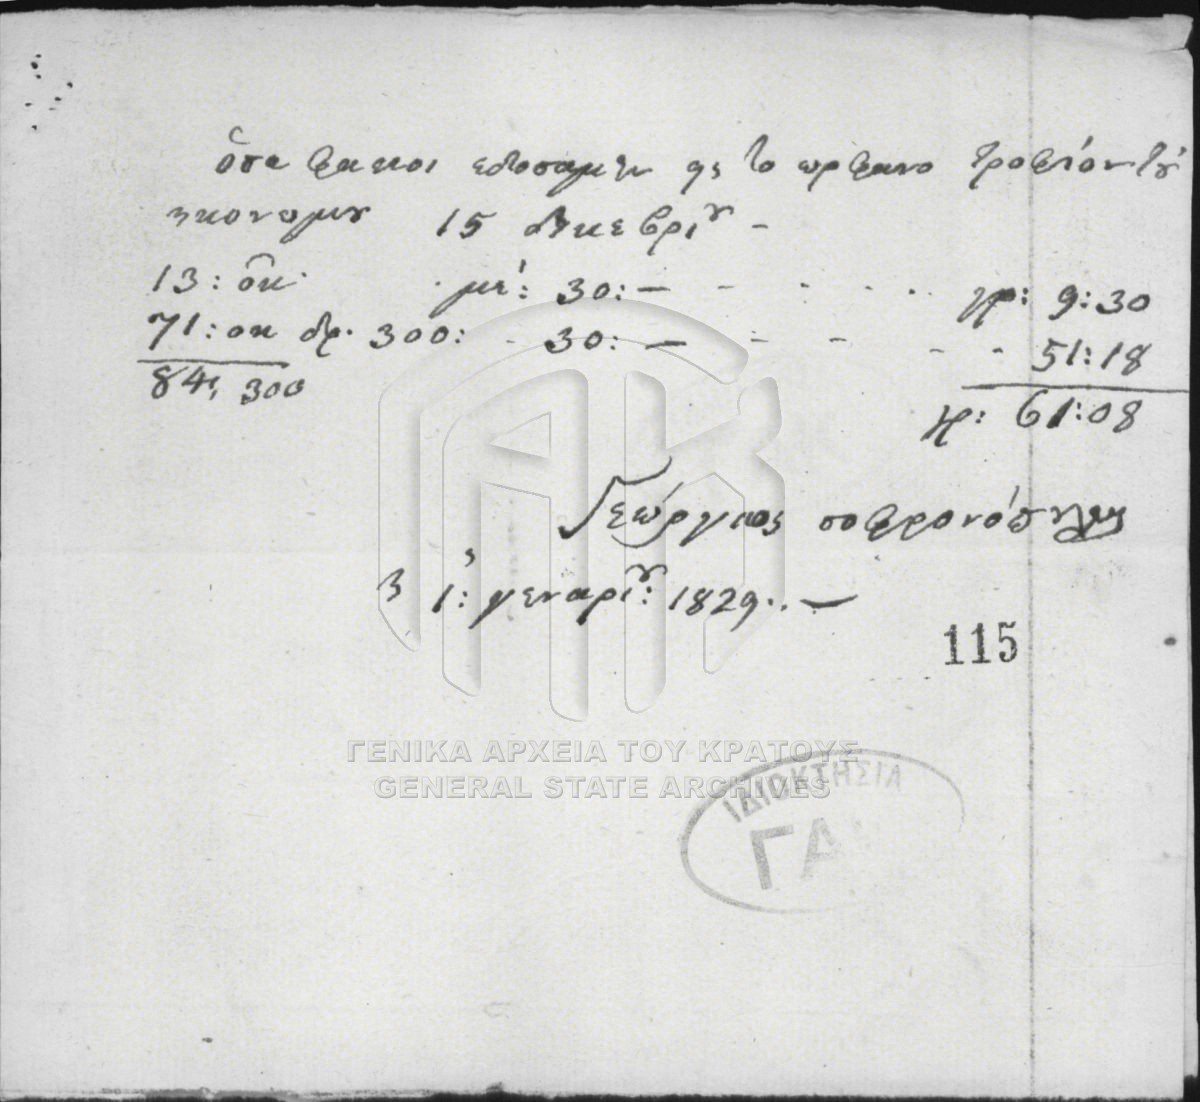 όσα φακοι εδοσαμεν ης το ωρφανο τροφιον τȣ
ηκονομȣ 15 δηκεβρίȣ -
13: οκ. μέ: 30: — γρ: 9:30
71: οκ δρ. 300: 30: — 51:18
84, 300
γρ: 61:08
Γεώργιος σοφρονόπȣλος
1: γεναρίȣ: 1829.. —
115
ΓΕΝΙΚΑ ΑΡΧΕΙΑ ΤΟΥ ΚΡΑΤΟΥΣ
GENERAL STATE ARCHIVES
ΙΔΙΟΚΤΗΣΙΑ
ΓΑ